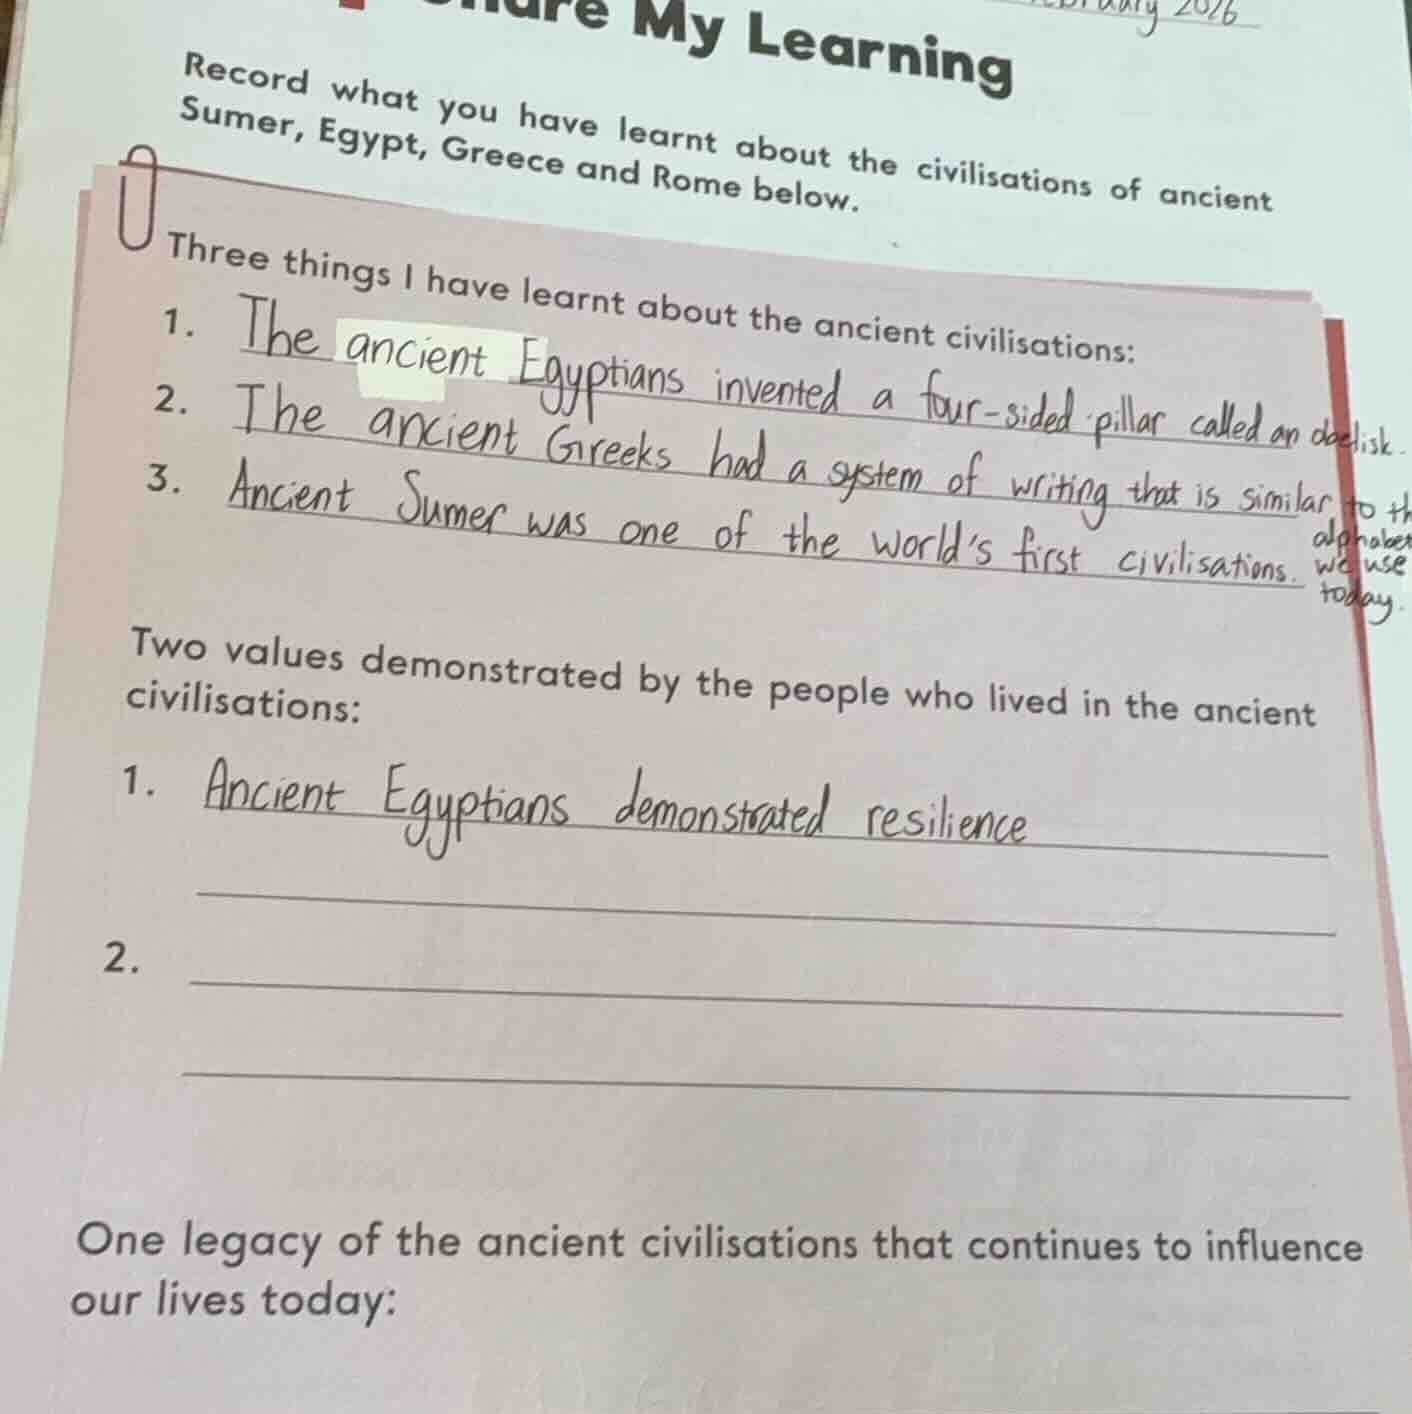 2026
My Learning
Record what you have learnt about the civilisations of ancient
Sumer, Egypt, Greece and Rome below.
Three things I have learnt about the ancient civilisations:
1. The ancient Egyptians invented a four-sided pillar called an obelisk.
2. The ancient Greeks had a system of writing that is similar to
alphabet
we use
today.
3. Ancient Sumer was one of the world's first civilisations.
Two values demonstrated by the people who lived in the ancient
civilisations:
1. Ancient Egyptians demonstrated resilience
2.
One legacy of the ancient civilisations that continues to influence
our lives today: